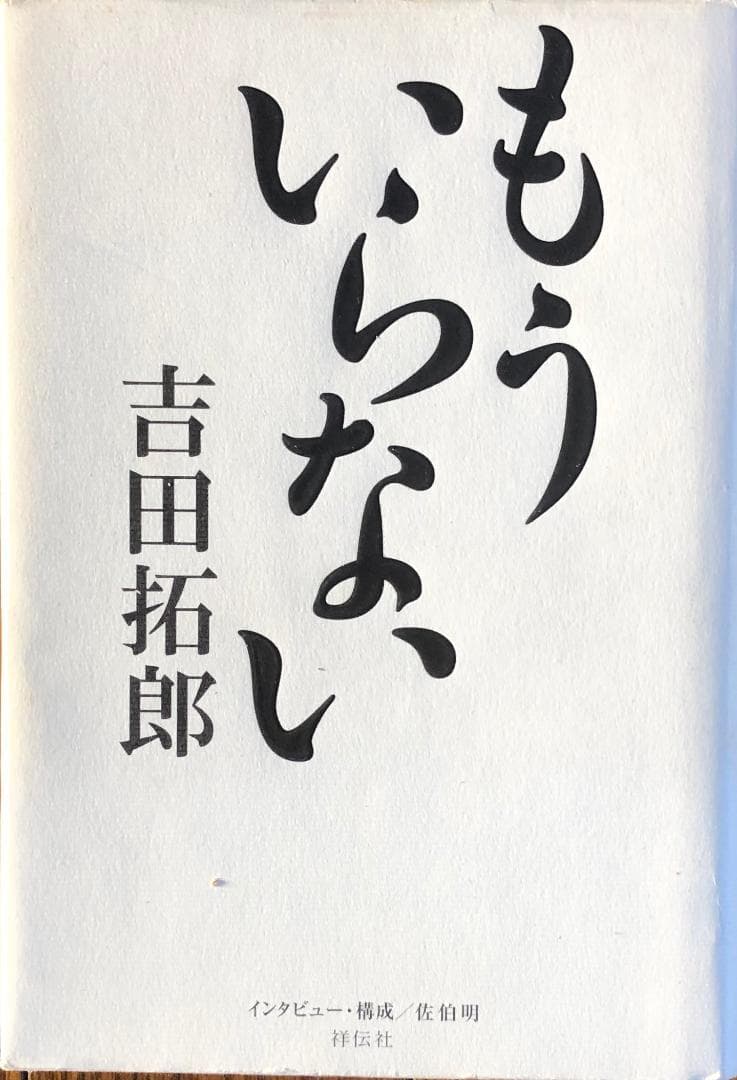 もう
いらない
吉田拓郎
インタビュー・構成／佐伯明
祥伝社